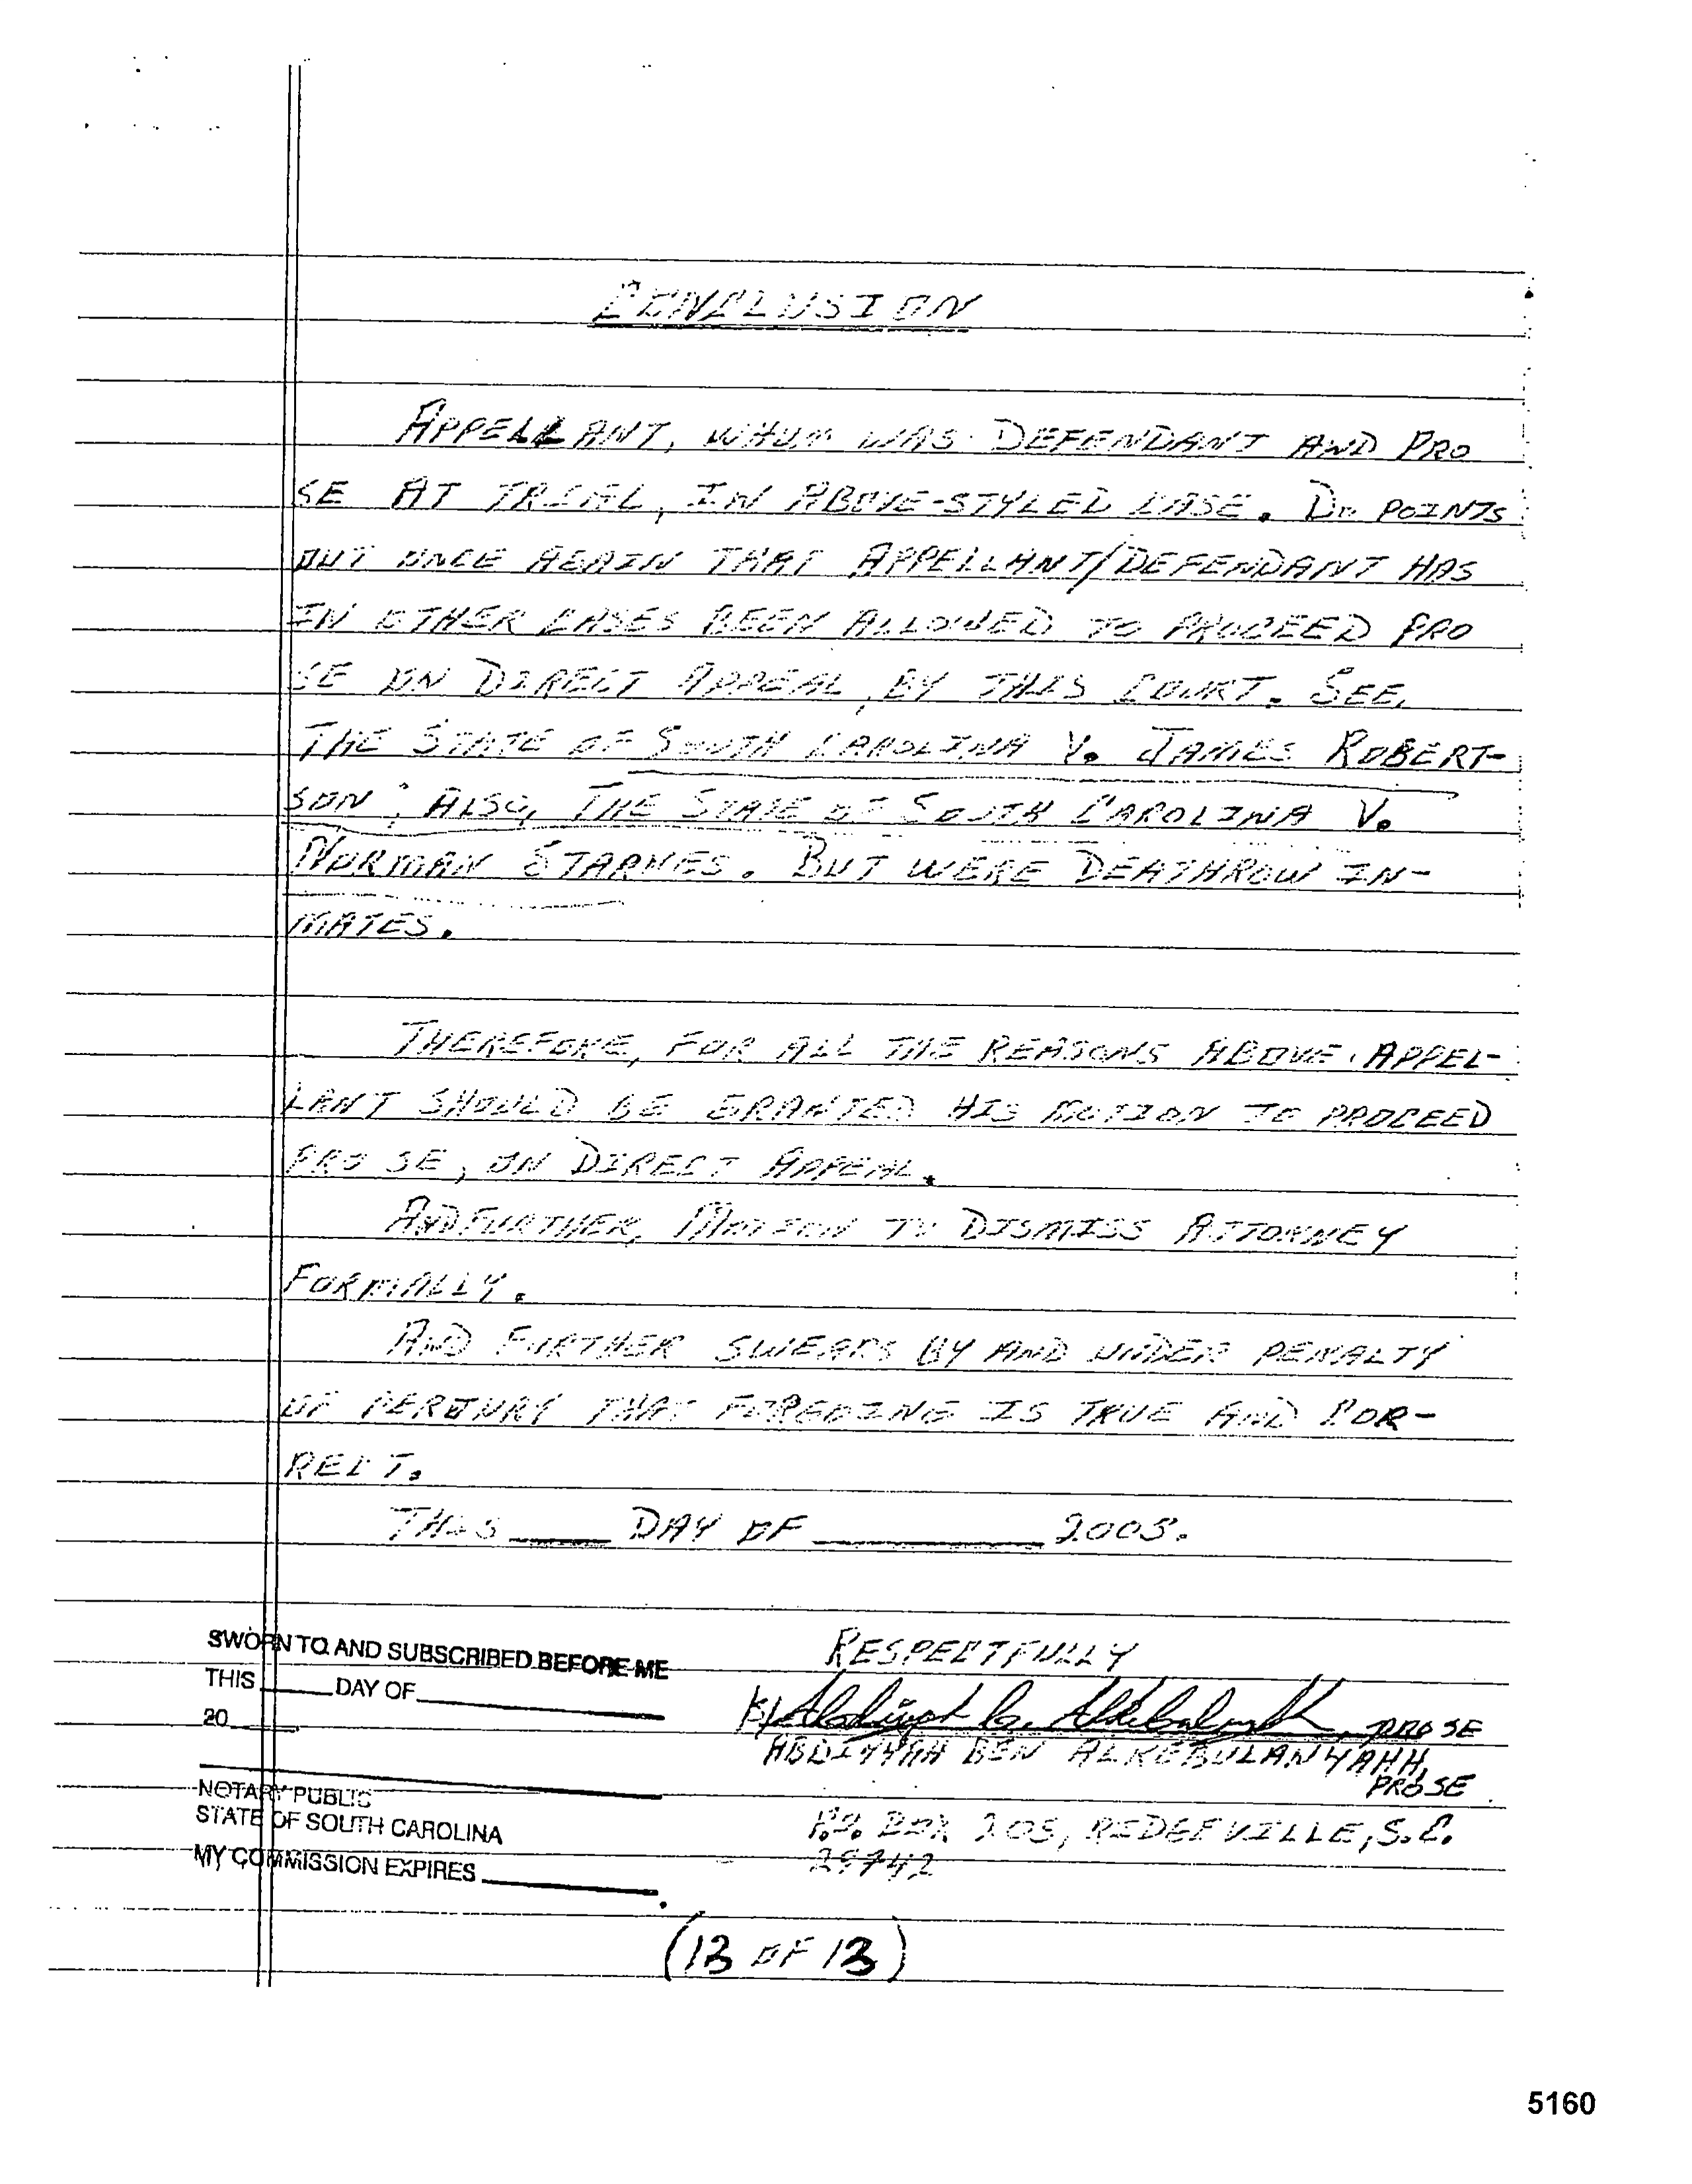 CONCLUSION
APPELLANT, WHOM WAS DEFENDANT AND PRO
SE AT TRIAL, IN ABOVE-STYLED CASE. DO POINTS
OUT ONCE AGAIN THAT APPELLANT/DEFENDANT HAS
IN OTHER CASES BEEN ALLOWED TO PROCEED PRO
SE ON DIRECT APPEAL, BY THIS COURT. SEE,
THE STATE OF SOUTH CAROLINA V. JAMES ROBERT-
SON; ALSO, THE STATE OF SOUTH CAROLINA V.
NORMAN STARNES. BUT WERE DEATHROW IN-
MATES.
THEREFORE, FOR ALL THE REASONS ABOVE, APPEL-
LANT SHOULD BE GRANTED HIS MOTION TO PROCEED
PRO SE, ON DIRECT APPEAL.
AND FURTHER, MOTION TO DISMISS ATTORNEY
FORMALLY.
AND FURTHER SWEARS BY AND UNDER PENALTY
OF PERJURY THAT FOREGOING IS TRUE AND COR-
RECT.
THIS ____ DAY OF ________ 2005.
RESPECTFULLY
SWORN TO AND SUBSCRIBED BEFORE ME
THIS ____ DAY OF ________
20____
NOTARY PUBLIC
STATE OF SOUTH CAROLINA
MY COMMISSION EXPIRES ________.
/s/ Abdiyyah b. Alkebulanyahh, PRO SE
ABDIYYAH BEN ALKEBULANYAHH,
PRO SE
P.O. BOX 205, RIDGEVILLE, S.C.
29472
(13 OF 13)
5160